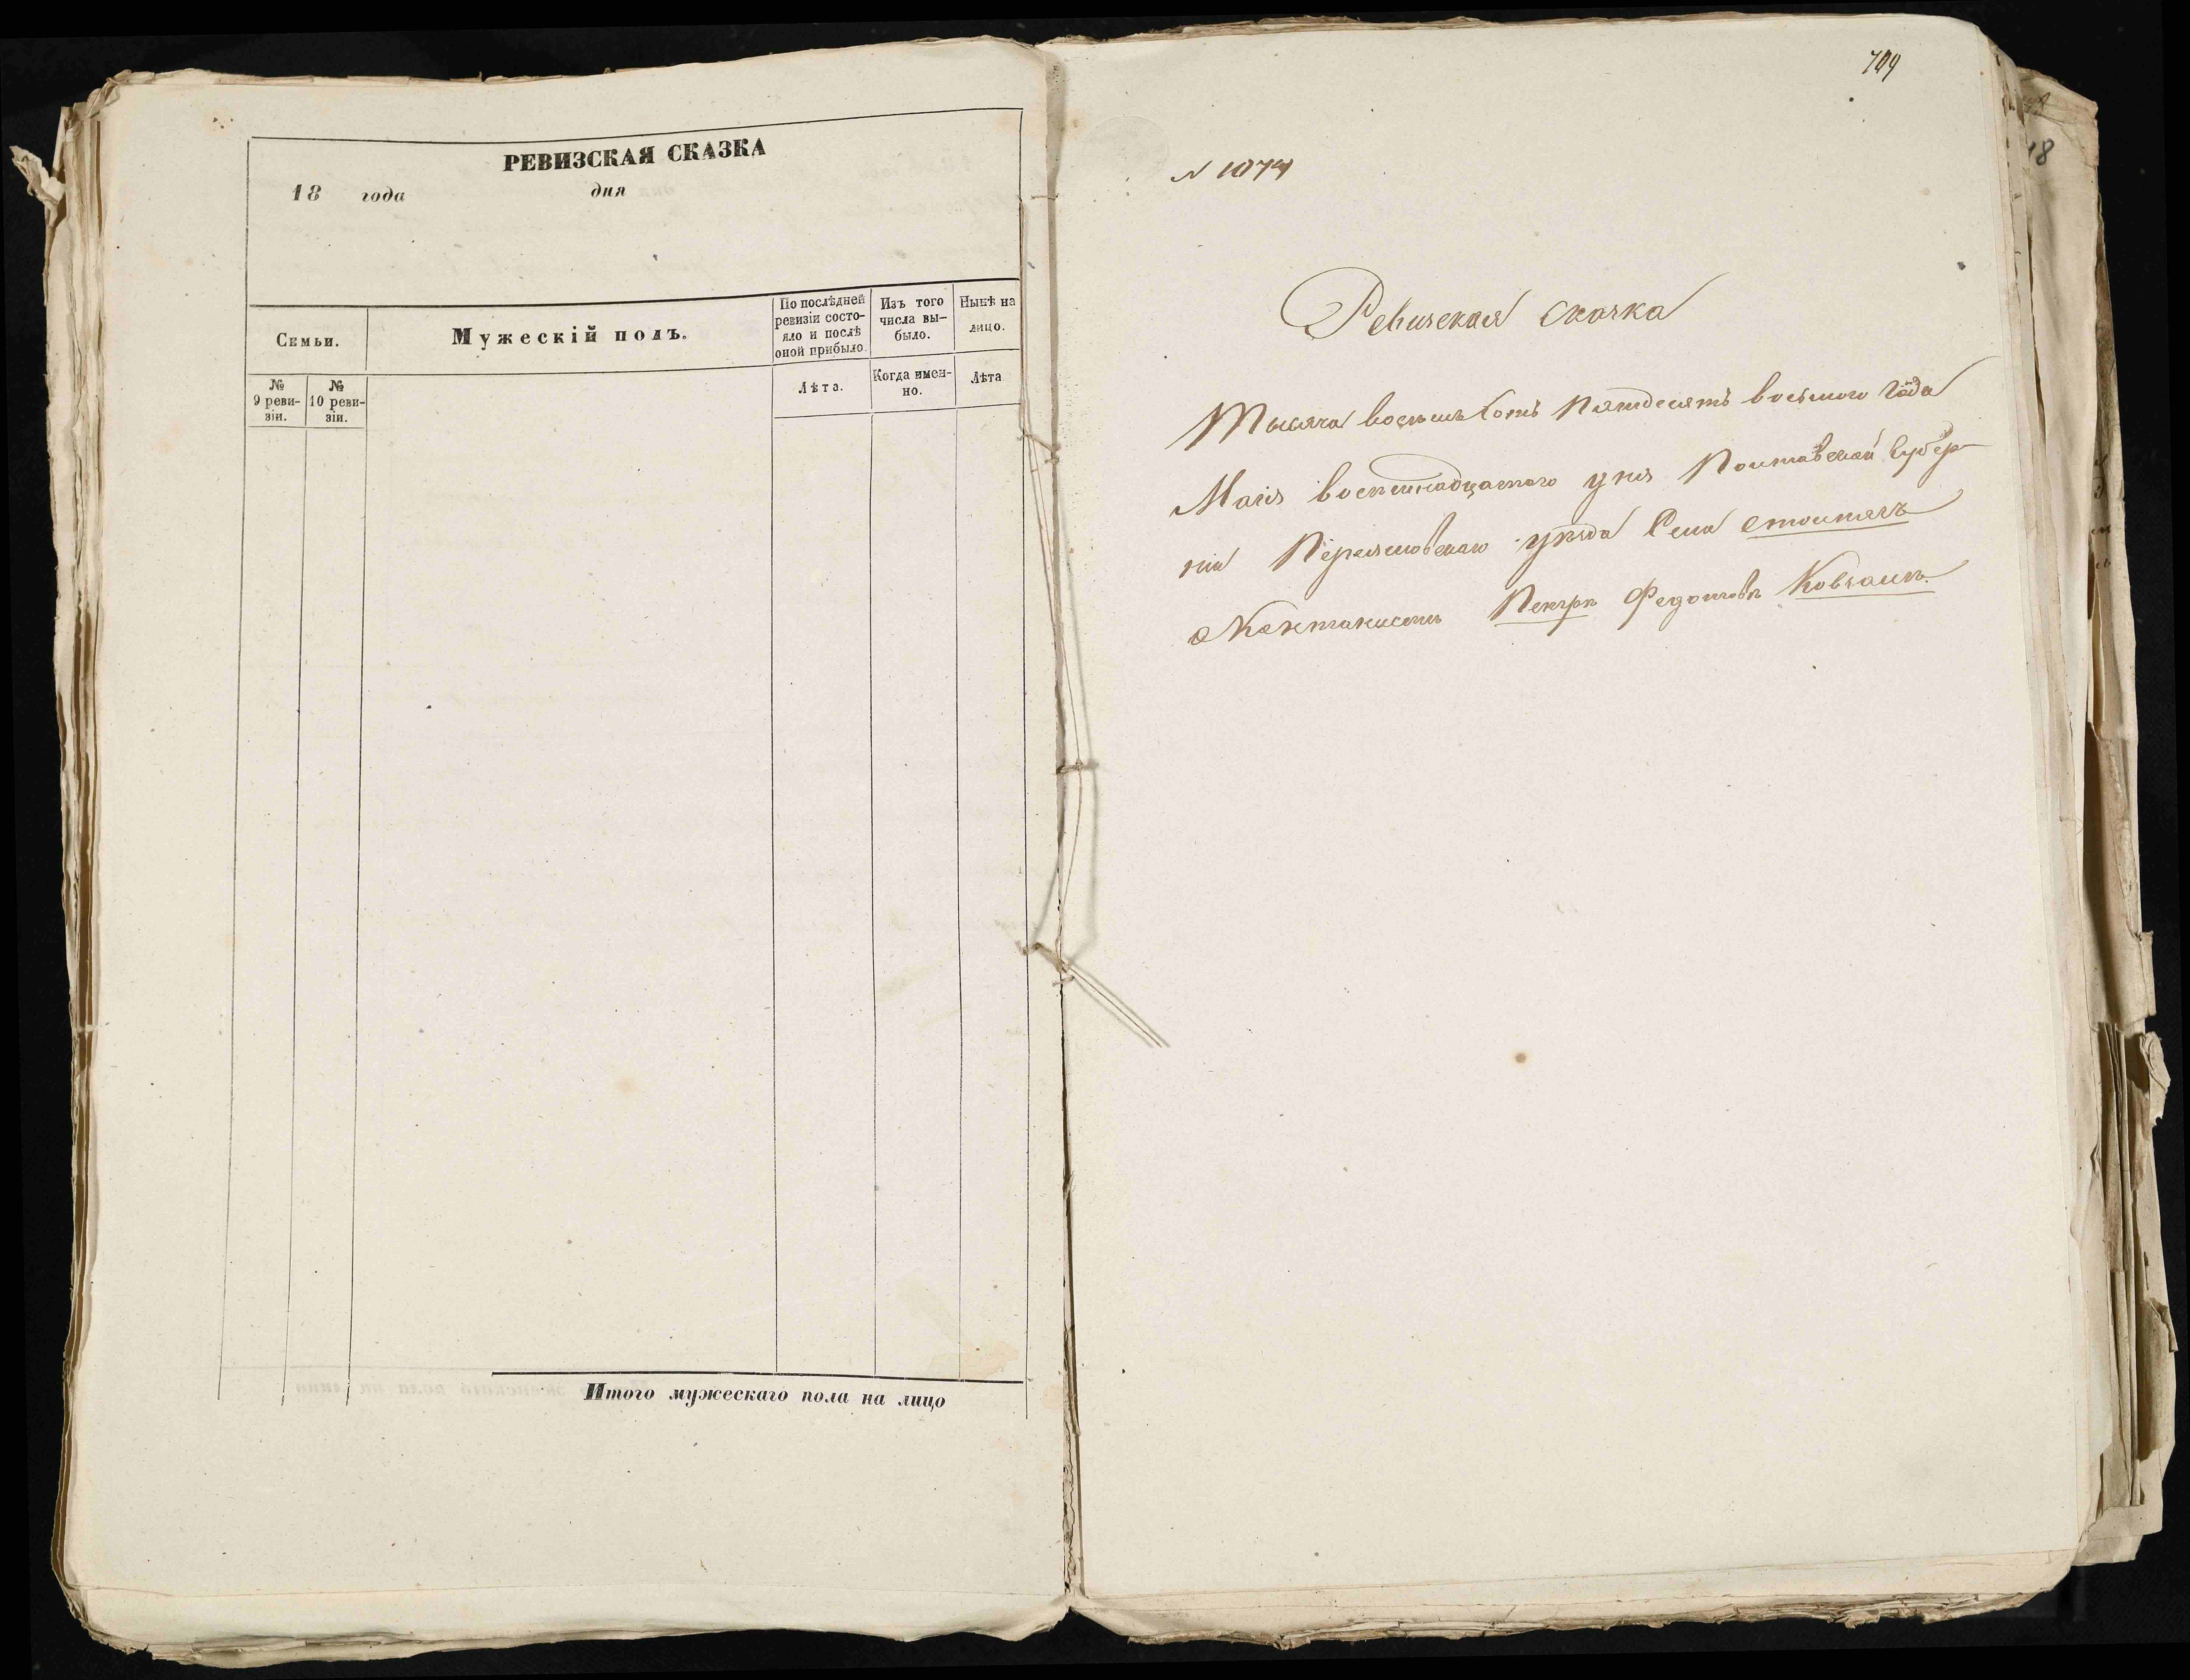 РЕВИЗСКАЯ СКАЗКА
18 года дня
Семьи.
Мужескій полъ.
По послѣдней ревизіи состо-
яло и послѣ
оной прибыло.
Изъ того
числа вы-
было.
Нынѣ на
лицо.
№
9 реви-
зіи.
№
10 реви-
зіи.
Лѣта.
Когда имен-
но.
Лѣта
Итого мужескаго пола на лицо
709
N 1074
Ревизская сказка
Тысяча восемьсотъ пятдесятъ восьмого года
Маія восемнадцатого дня Полтавской Губер-
ніи Переяславскаго уѣзда Села
Петръ Федоровъ
18